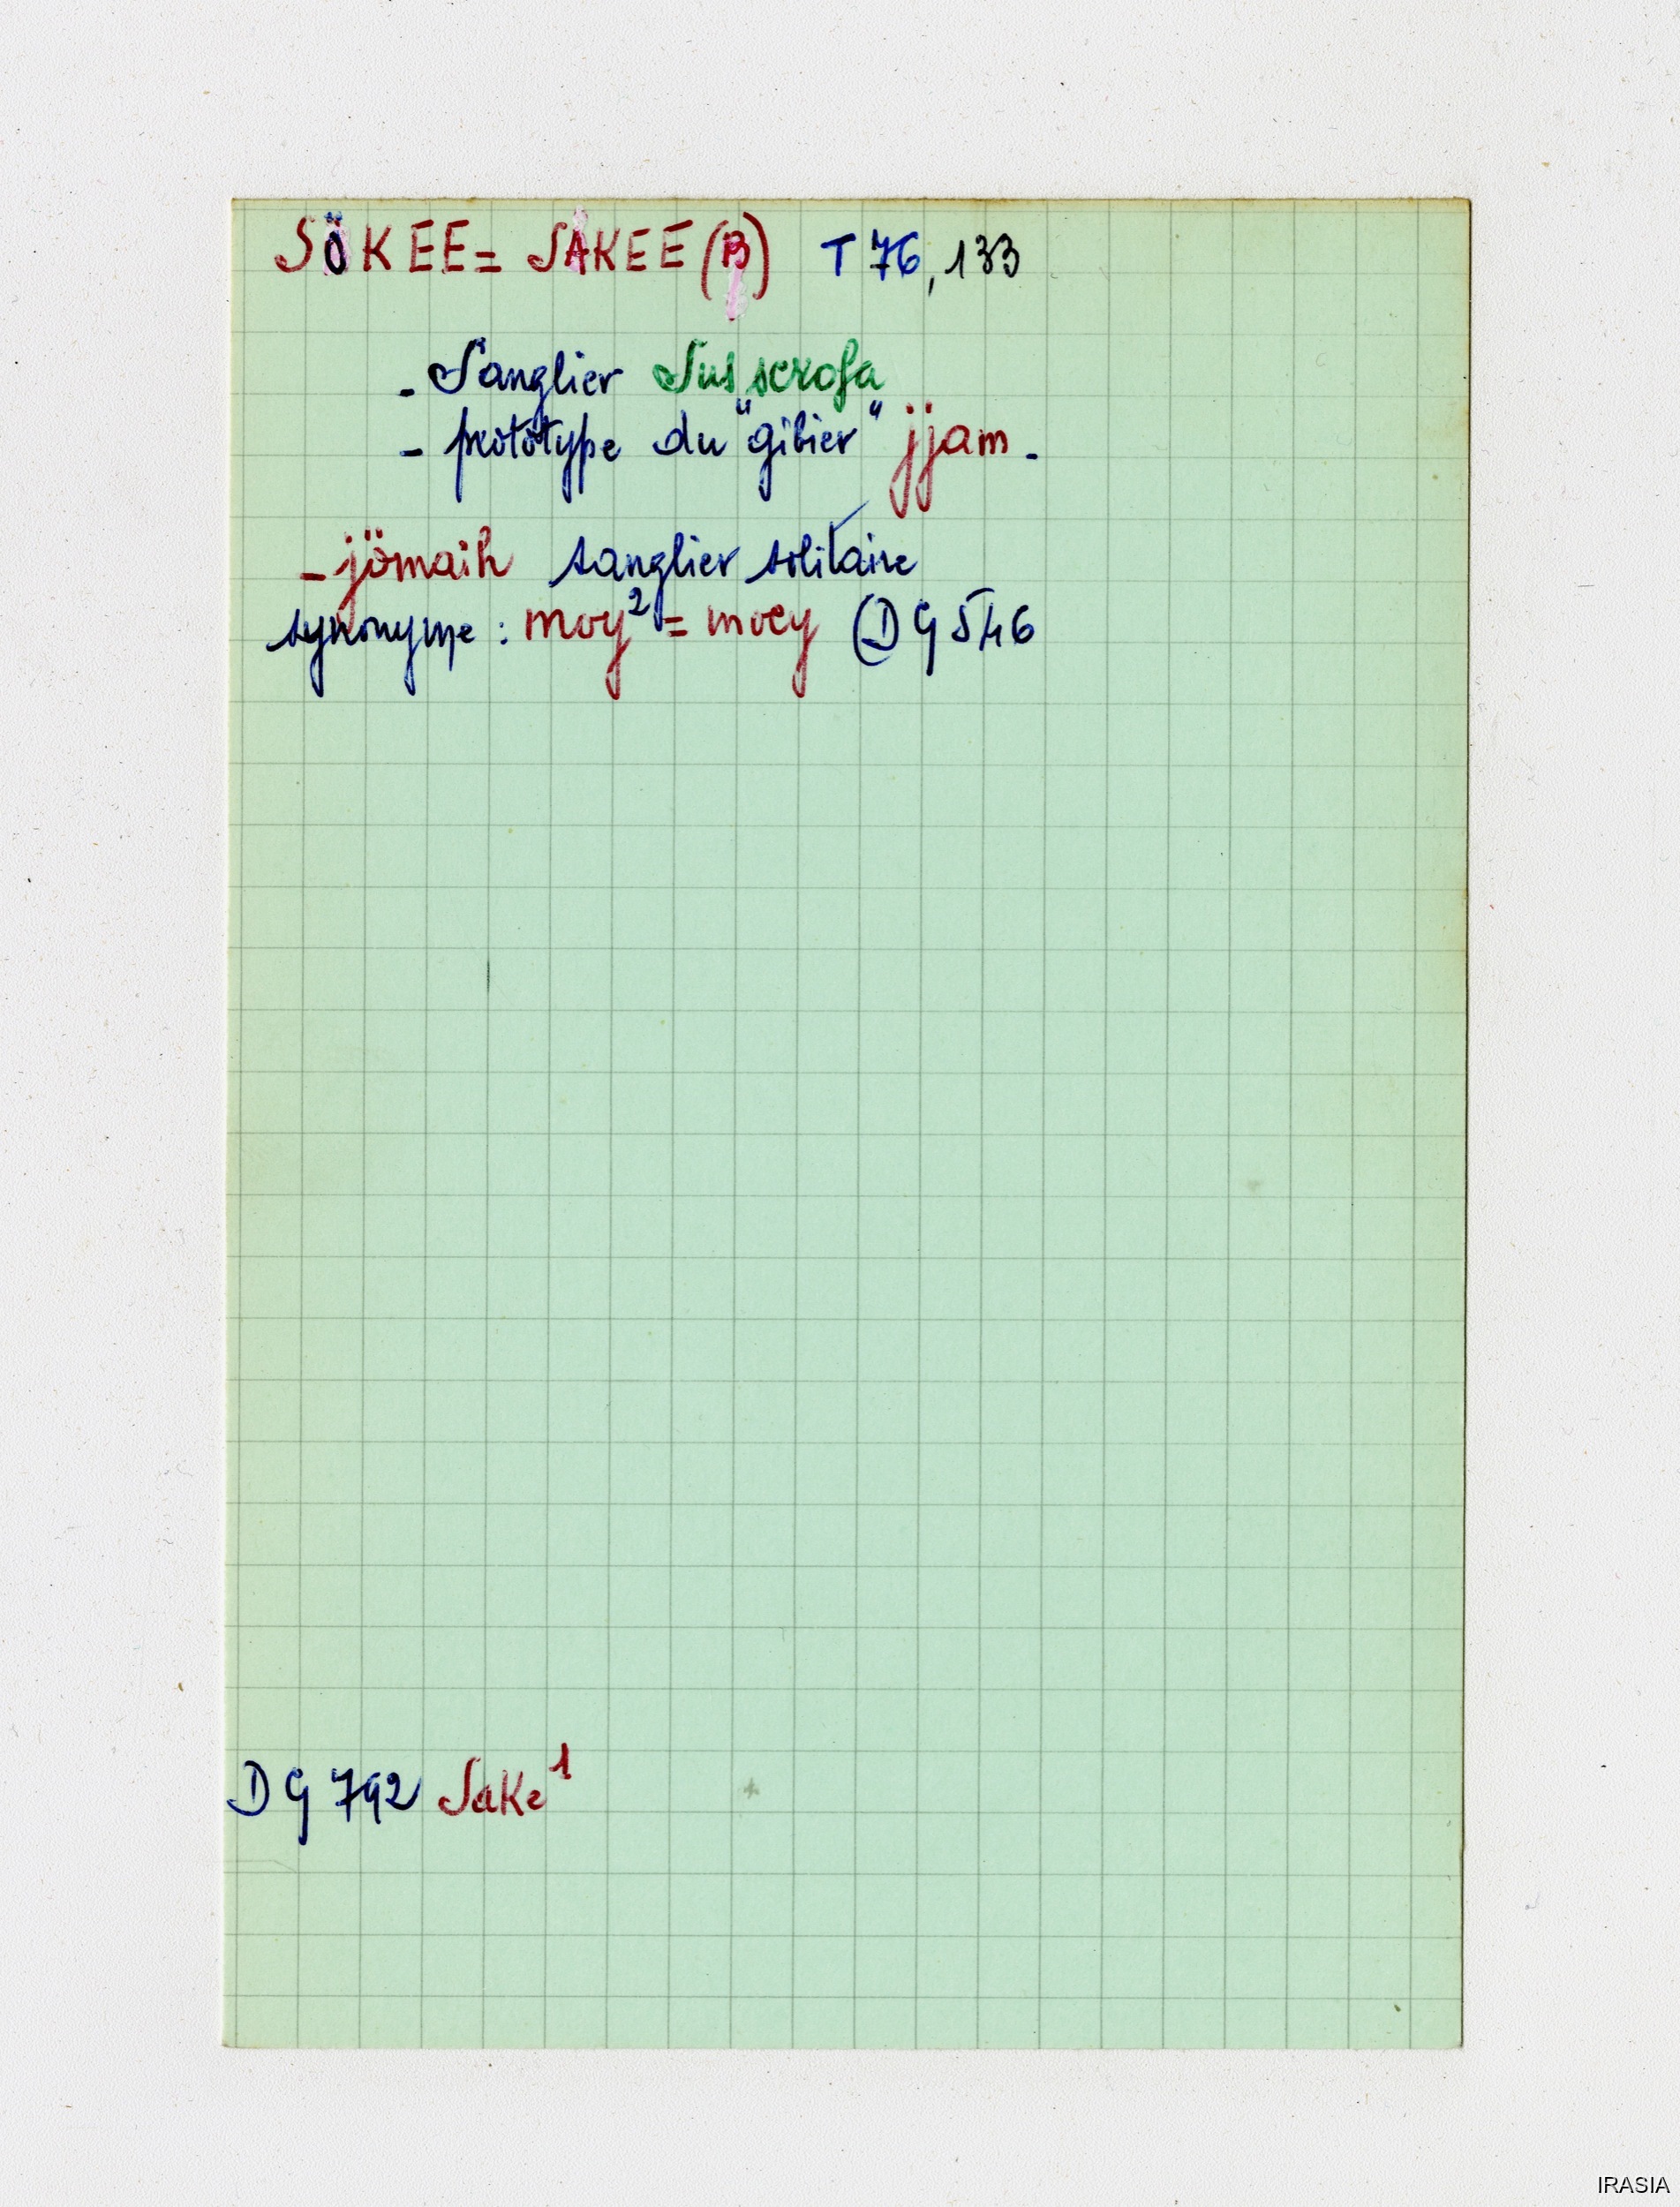 SÖKEE = SAKEE (B) T 76, 133
- Sanglier Sus scrofa
- prototype du "gibier" jjam -
- jömaih sanglier solitaire
synonyme : moy² = moey (DG 546
DG 792 Sake¹
IRASIA